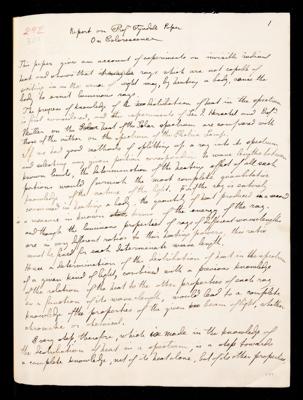 292
1
Report on Prof Tyndalls Paper
On Calorescence
This paper gives an account of experiments on invisible radiant
heat and shows that rays which are not capable of
acting on the sense of sight may, by heating a body, cause the
body to emit luminous rays.
The progress of knowledge of the distribution of heat in the spectrum
is first considered, and the experiments of Sir J. Herschel and Profr
Müller on the heat of the Solar spectrum are compared with
those of the author on the spectrum of the Electric Lamp.
If we had good methods of splitting up a ray into its spectrum
and selecting any given portion corresponding to wave lengths between
known limits, the determination of the heating effect of all such
portions would furnish the most complete quantitative
knowledge of the nature of the light. For if the ray is entirely
consumed in heating a body, the quantity of heat produced in a second
is a measure in known terms of the energy of the ray.
and though the luminous properties of rays of different wavelengths
are in very different ratios to their heating powers, this ratio
must be fixed for each determinate wave length.
Hence a determination of the distribution of heat in the spectrum
of a given kind of light, combined with a previous knowledge
of the relation of the heat to the other properties of each ray
as a function of its wavelength, would lead to a complete
knowledge of the properties of the given beam of light, whether
chromatic or chemical.
Every step therefore, which is made in the knowledge of
the distribution of heat in a spectrum, is a step towards
a complete knowledge, not of its heat alone, but of its other properties